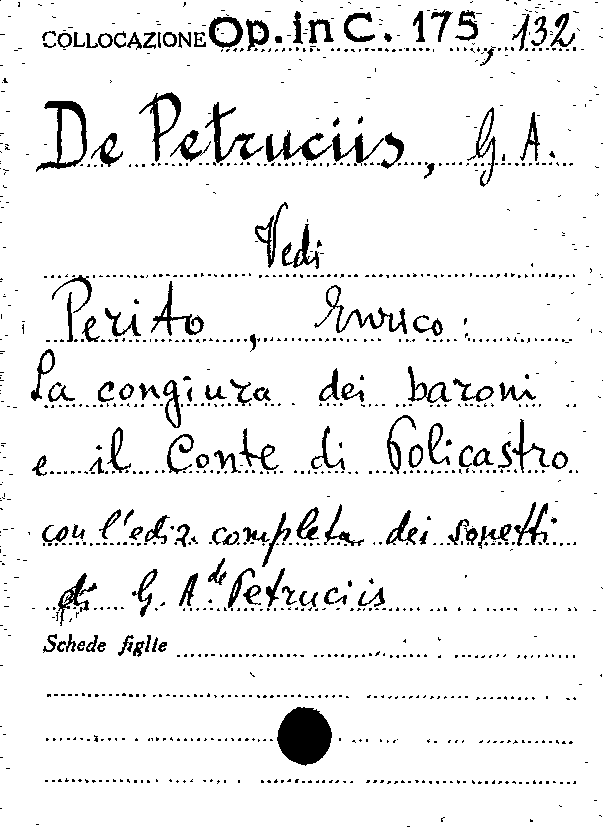 COLLOCAZIONE Op. in C. 175, 132
De Petruciis, G. A.
Vedi
Perito, Enrico:
La congiura dei baroni
e il Conte di Policastro
con l'ediz. completa dei sonetti
di G. A. de Petruciis
Schede figlie